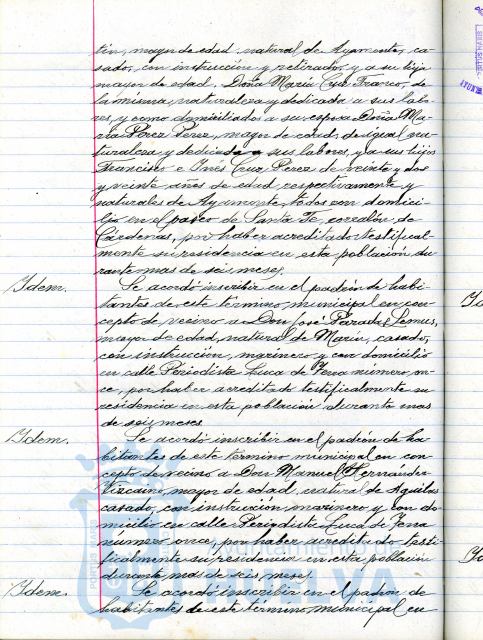 tín, mayor de edad, natural de Ayamonte, ca-
sado, con instrucción y retirado, y a su hija
mayor de edad, Doña María Cruz Franco, de
la misma naturaleza y dedicada a sus labo-
res, y como domiciliados a su esposa Doña Ma-
ría Pérez Pérez, mayor de edad, de igual na-
turaleza y dedicada a sus labores, y a sus hijos
Francisco e Inés Cruz Pérez de veinte y dos
y veinte años de edad respectivamente y
naturales de Ayamonte, todos con domici-
lio en el paseo de Santa Fe, corralón de
Cárdenas, por haber acreditado testifical-
mente su residencia en esta población du-
rante mas de seis meses.
Idem. Se acordó inscribir en el padrón de habi-
tantes de este término municipal en con-
cepto de vecino a Don José Parada Lemus,
mayor de edad, natural de Marín, casado,
con instrucción, marinero y con domicilio
en calle Periodista Luca de Tena número on-
ce, por haber acreditado testificalmente su
residencia en esta población durante mas
de seis meses.
Idem. Se acordó inscribir en el padrón de ha-
bitantes de este término municipal en con-
cepto de vecino a Don Manuel Hernández
Vizcaíno, mayor de edad, natural de Aguilas
casado, con instrucción, marinero y con do-
micilio en calle Periodista Luca de Tena
número once, por haber acreditado testi-
ficalmente su residencia en esta población
durante mas de seis meses.
Idem. Se acordó inscribir en el padrón de
habitantes de este término municipal en